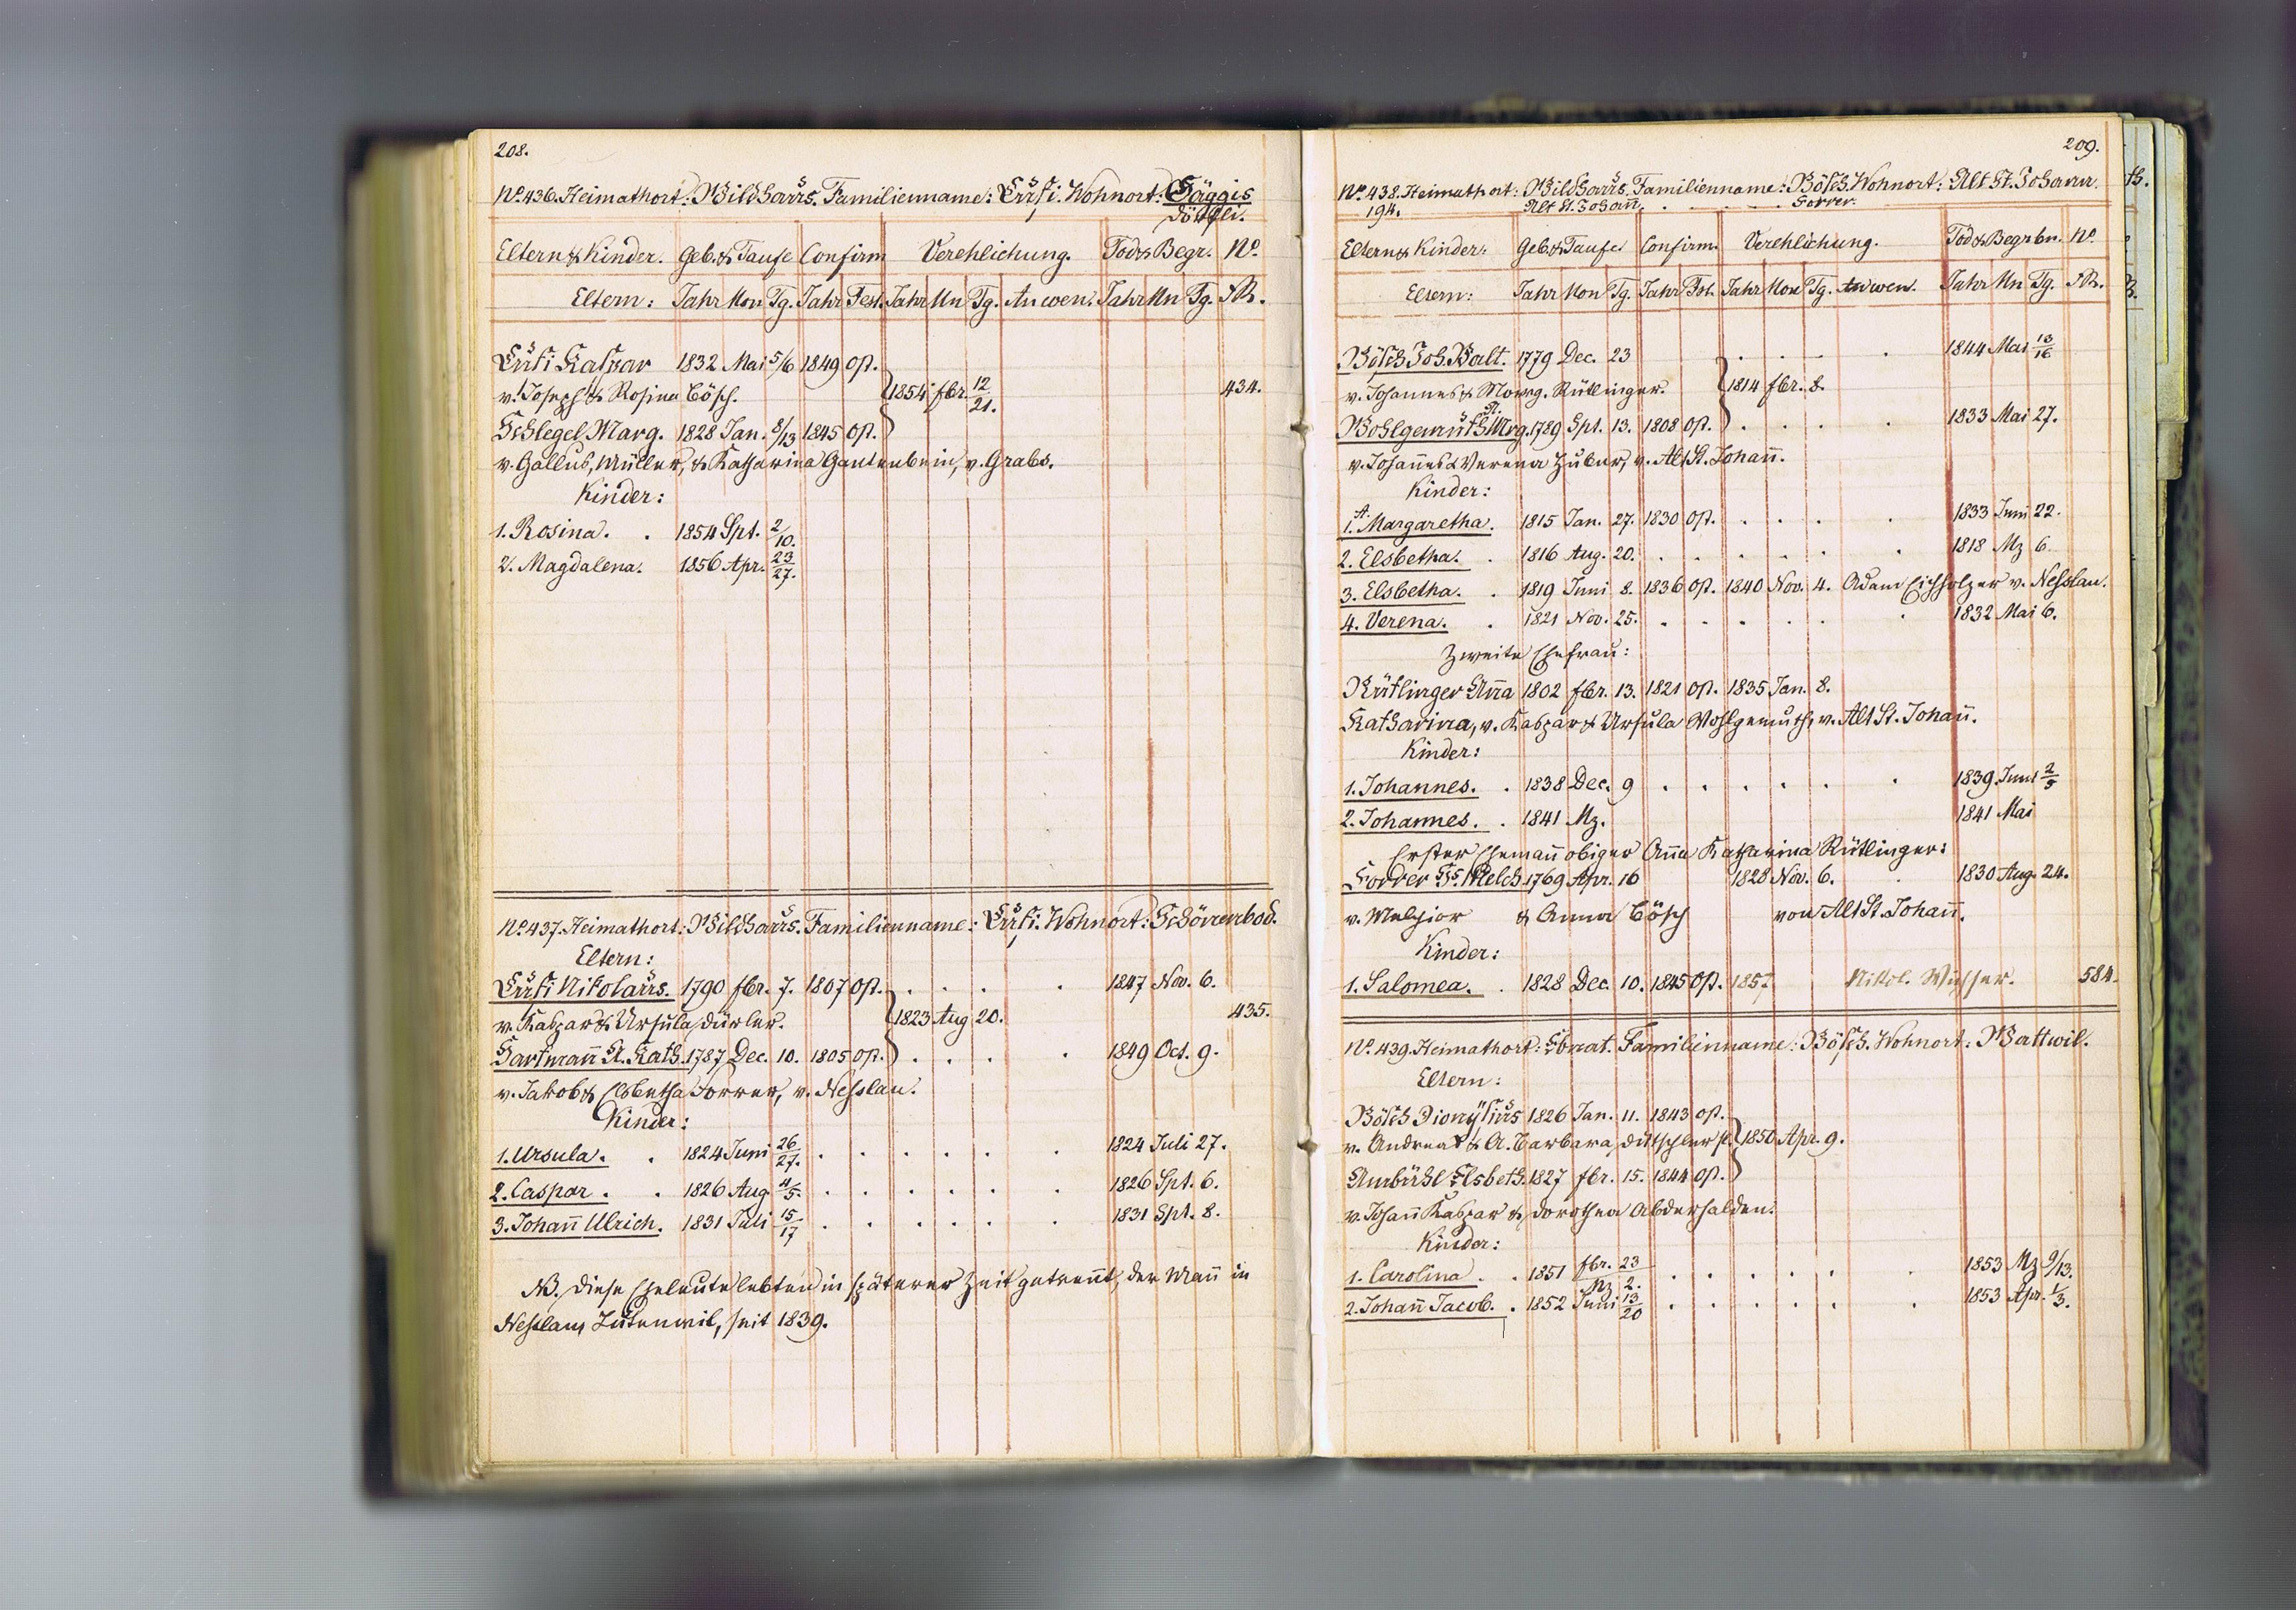 208.
No. 436. Heimathort: Wildhaus. Familienname: Lüsi. Wohnort:
Eltern & Kinder. Geb. & Taufe Confirm Verehlichung. Tod & Begr. No.
Eltern: Jahr Mon Tg. Jahr Fest. Jahr Mn Tg. An wen. Jahr Mn Tg. FR.
Kaspar 1832 Mai 5/6 1849 Ost.
v. Joseph & Rosina Bösch. 1854 fbr. 12/21. 434.
Schlegel Marg. 1828 Jan. 8/13 1845 Ost.
v. Gallus, Müller, & Katharina Gantenbein, v. Grabs.
Kinder:
1. Rosina. . 1854 Spt. 2/10.
2. Magdalena. 1856 Apr. 23/27.
No. 437. Heimathort: Wildhaus. Familienname: Wohnort: Schönenbod.
Eltern:
Nikolaus. 1790 fbr. 7. 1807 Ost. . . . . 1847 Nov. 6.
v. Kaspar & Ursula Dürler. 1823 Aug 20. 435.
Hartmann A. Kath. 1787 Dec. 10. 1805 Ost. . . . . 1849 Oct. 9.
v. Jakob & Elsbetha Forrer, v. Nesslau.
Kinder:
1. Ursula. . 1824 Juni 26/27. . . . . . . 1824 Juli 27.
2. Caspar. . 1826 Aug 4/5. . . . . . . 1826 Spt. 6.
3. Johañ Ulrich. 1831 Juli 15/17 . . . . . . 1831 Spt. 8.
NB. Diese Eheleute lebten in späterer Zeit getreñt, der Mañ in
Nesslau, Lutenwil, seit 1839.
209.
No. 438. Heimathort: Wildhaus. Familienname: Bösch. Wohnort: Alt St. Johann.
194. Alt St. Johañ. . . . . Forrer.
Eltern & Kinder. Geb. & Taufe Confirm. Verehlichung. Tod & Begrbn. No.
Eltern: Jahr Mon Tg. Jahr Fst. Jahr Mon Tg. An wen. Jahr Mn Tg. FR.
Bösch Joh. Balt. 1779 Dec. 23 . . . . 1844 Mai 13/16
v. Johannes & Marg. Rütlinger. 1814 fbr. 8.
Wohlgemuth A. Mrg. 1789 Spt. 13. 1808 Ost. . . . . 1833 Mai 27.
v. Johañes & Verena Huber, v. Alt St. Johañ.
Kinder:
1. A. Margaretha. 1815 Jan. 27. 1830 Ost. . . . . 1833 Juni 22.
2. Elsbetha. . 1816 Aug. 20. . . . . . . 1818 Mz 6.
3. Elsbetha. . 1819 Juni 8. 1836 Ost. 1840 Nov. 4. Adam Eichholzer v. Nesslau.
4. Verena. . 1821 Nov. 25. . . . . . . 1832 Mai 6.
Zweite Ehefrau:
Rütlinger Aña 1802 fbr. 13. 1821 Ost. 1835 Jan. 8.
Katharina, v. Kaspar & Ursula Wohlgemuth, v. Alt St. Johañ.
Kinder:
1. Johannes. . 1838 Dec. 9 . . . . . . 1839. Juni 2/5
2. Johannes. . 1841 Mz. 1841 Mai
Erster Ehemañ obiger Aña Katharina Rütlinger:
Forrer Js. Melch. 1769 Apr. 16 1828 Nov. 6. 1830 Aug. 24.
v. Melchior & Anna Bösch von Alt St. Johañ.
Kinder:
1. Salomea. . 1828 Dec. 10. 1845 Ost. 1857 Nikol. 584.
No. 439. Heimathort: Ebnat. Familienname: Bösch. Wohnort: Wattwil.
Eltern:
Bösch Dionysius 1826 Jan. 11. 1843 Ost.
v. Andreas & A. Barbara 1850 Apr. 9.
Ambühl Elsbeth. 1827 fbr. 15. 1844 Ost.
v. Johañ Kaspar & Dorothea Abderhalden.
Kinder:
1. Carolina. . 1851 fbr. 23 / Mz 2. . . . . . . 1853 Mz 9/13.
2. Johañ Jacob. . 1852 Juni 13/20 . . . . . . 1853 Apr. 1/3.